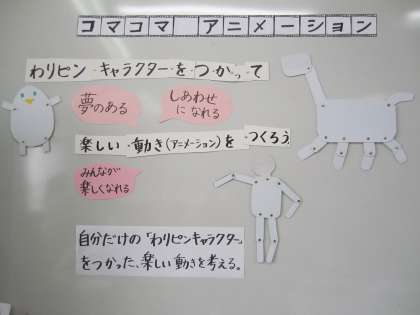 コマコマ アニメーション
わりピン キャラクターをつかって
夢のある
しあわせ
になれる
楽しい 動き(アニメーション)を つくろう
みんなが
楽しくなれる
自分だけの「わりピンキャラクター」
をつかった、楽しい動きを考える。